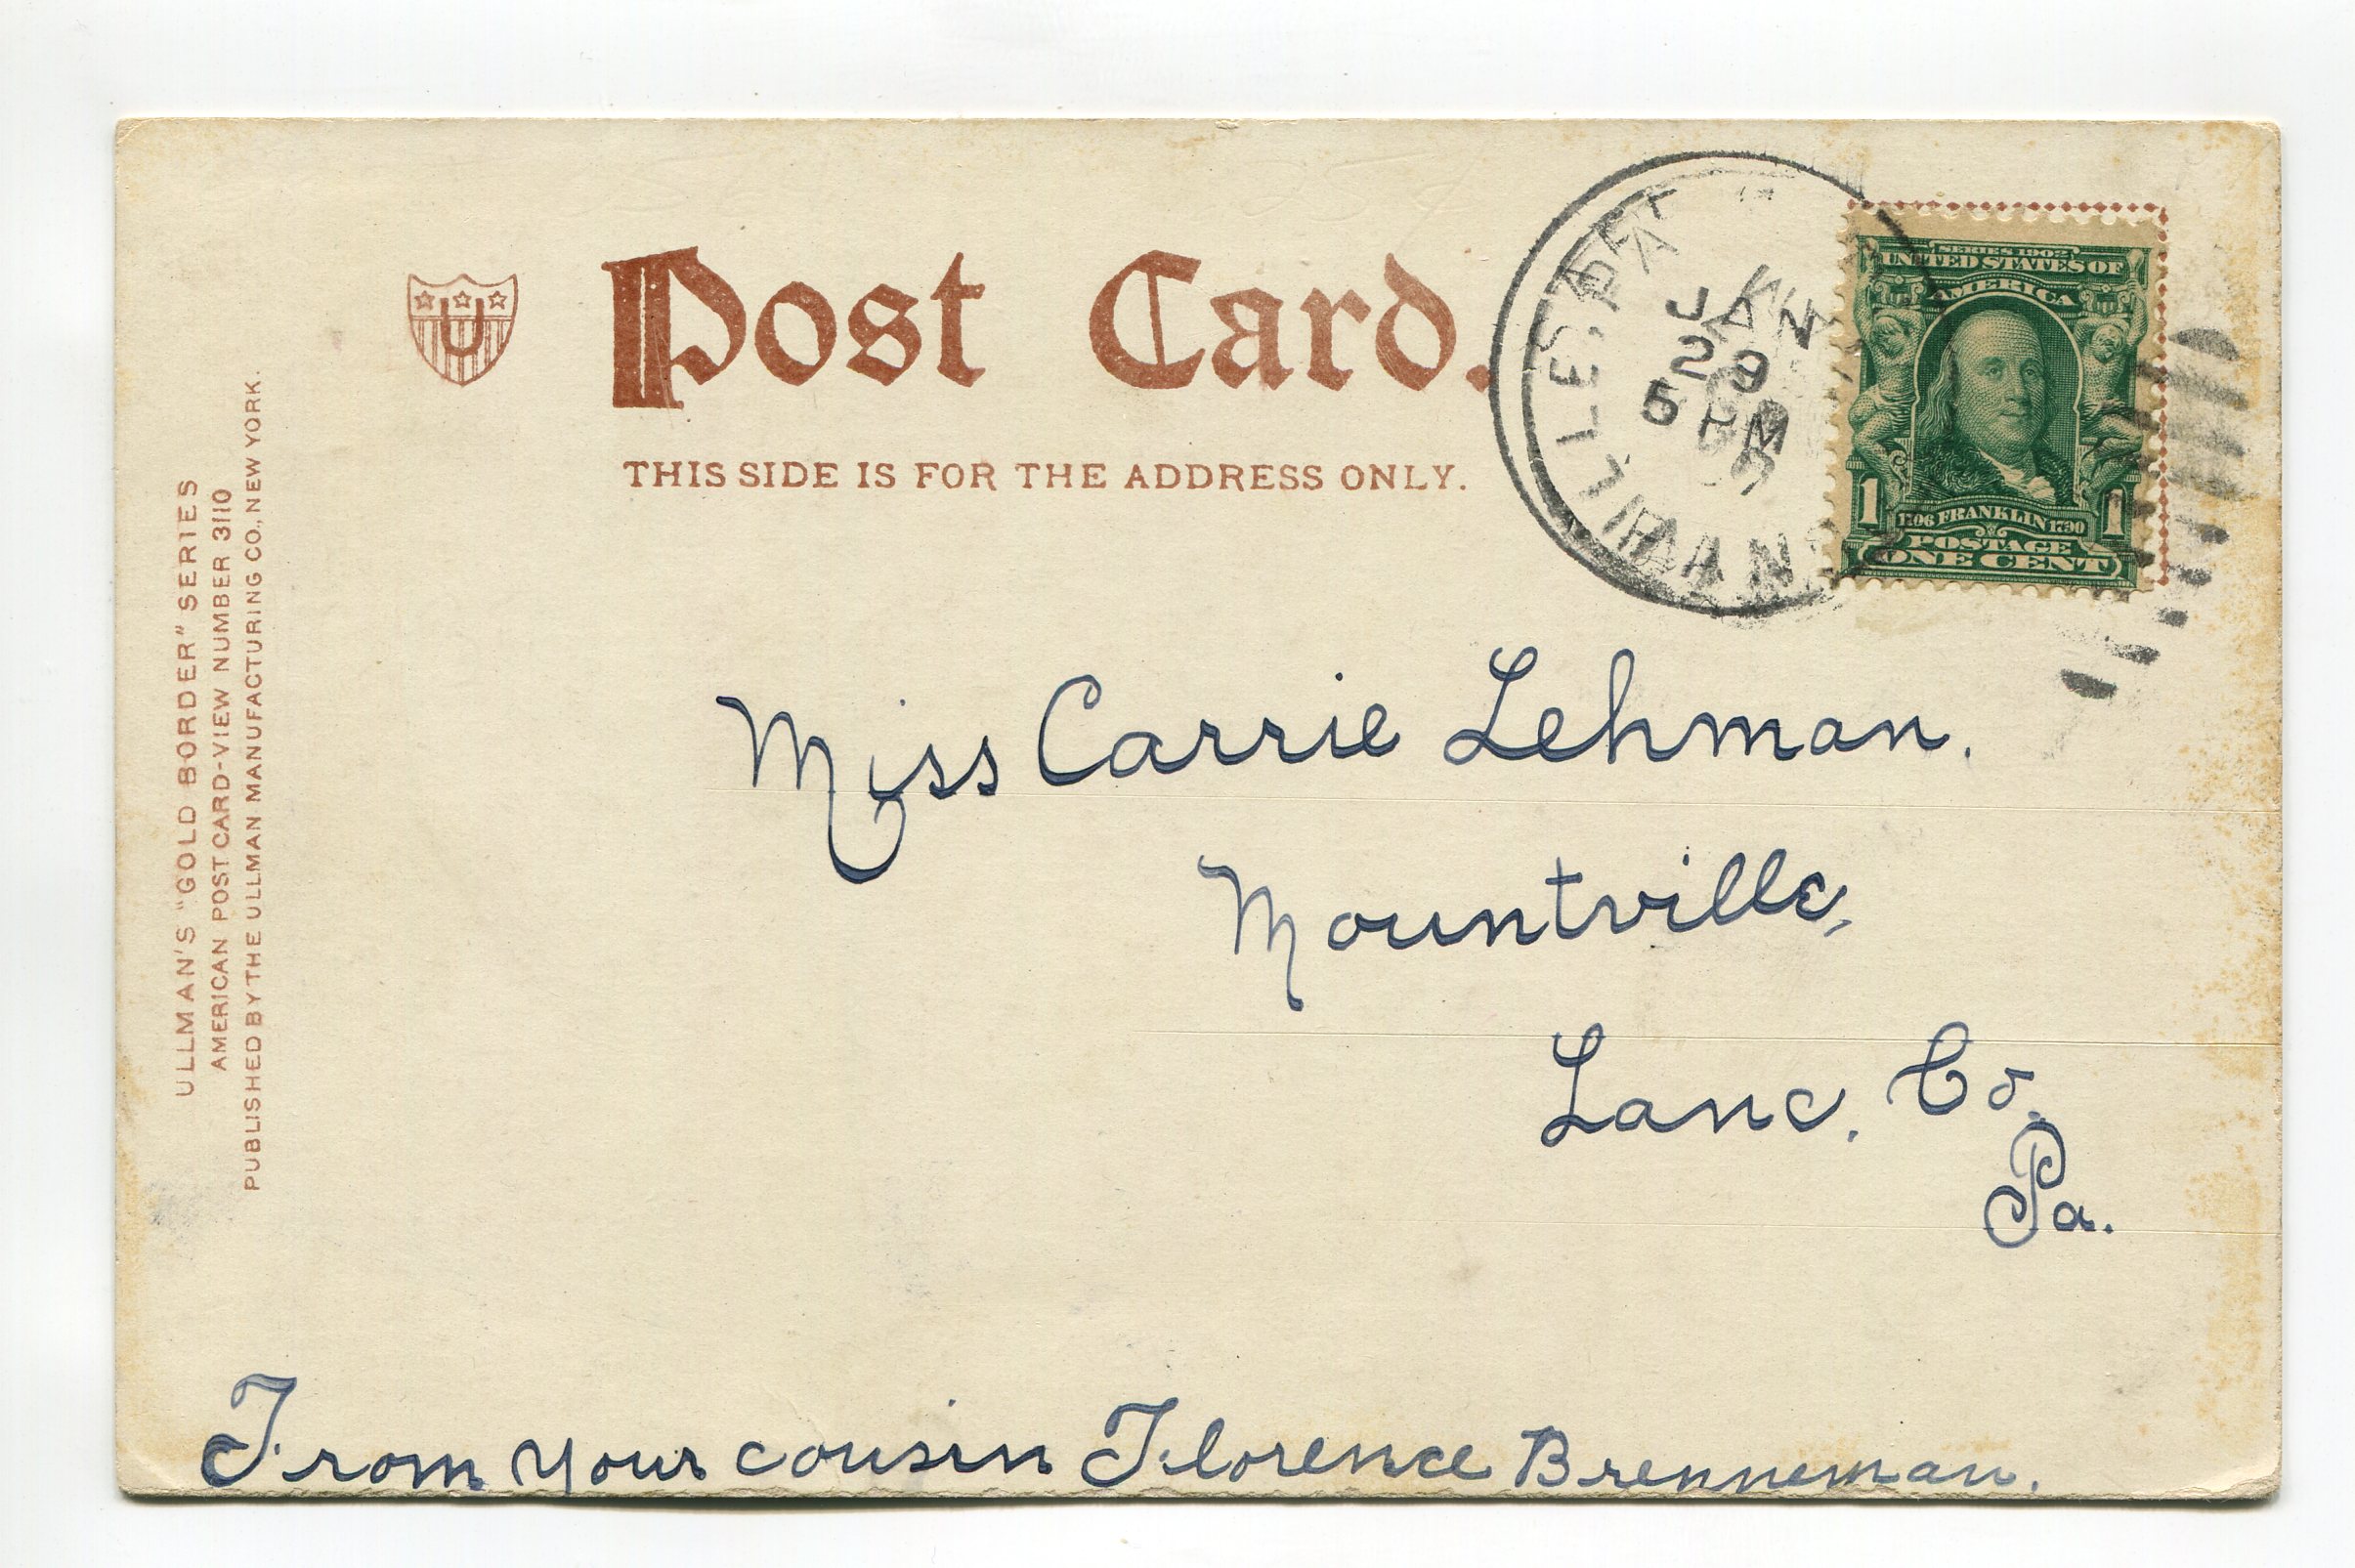 ULLMAN'S "GOLD BORDER" SERIES
AMERICAN POST CARD-VIEW NUMBER 3110
PUBLISHED BY THE ULLMAN MANUFACTURING CO., NEW YORK.
U
Post Card.
THIS SIDE IS FOR THE ADDRESS ONLY.
JAN
29
5 PM
PA
SERIES 1902
UNITED STATES OF
AMERICA
1 1706 FRANKLIN 1790 1
POSTAGE
ONE CENT
Miss Carrie Lehman.
Mountville,
Lanc. Co.
Pa.
From your cousin Florence Brenneman.